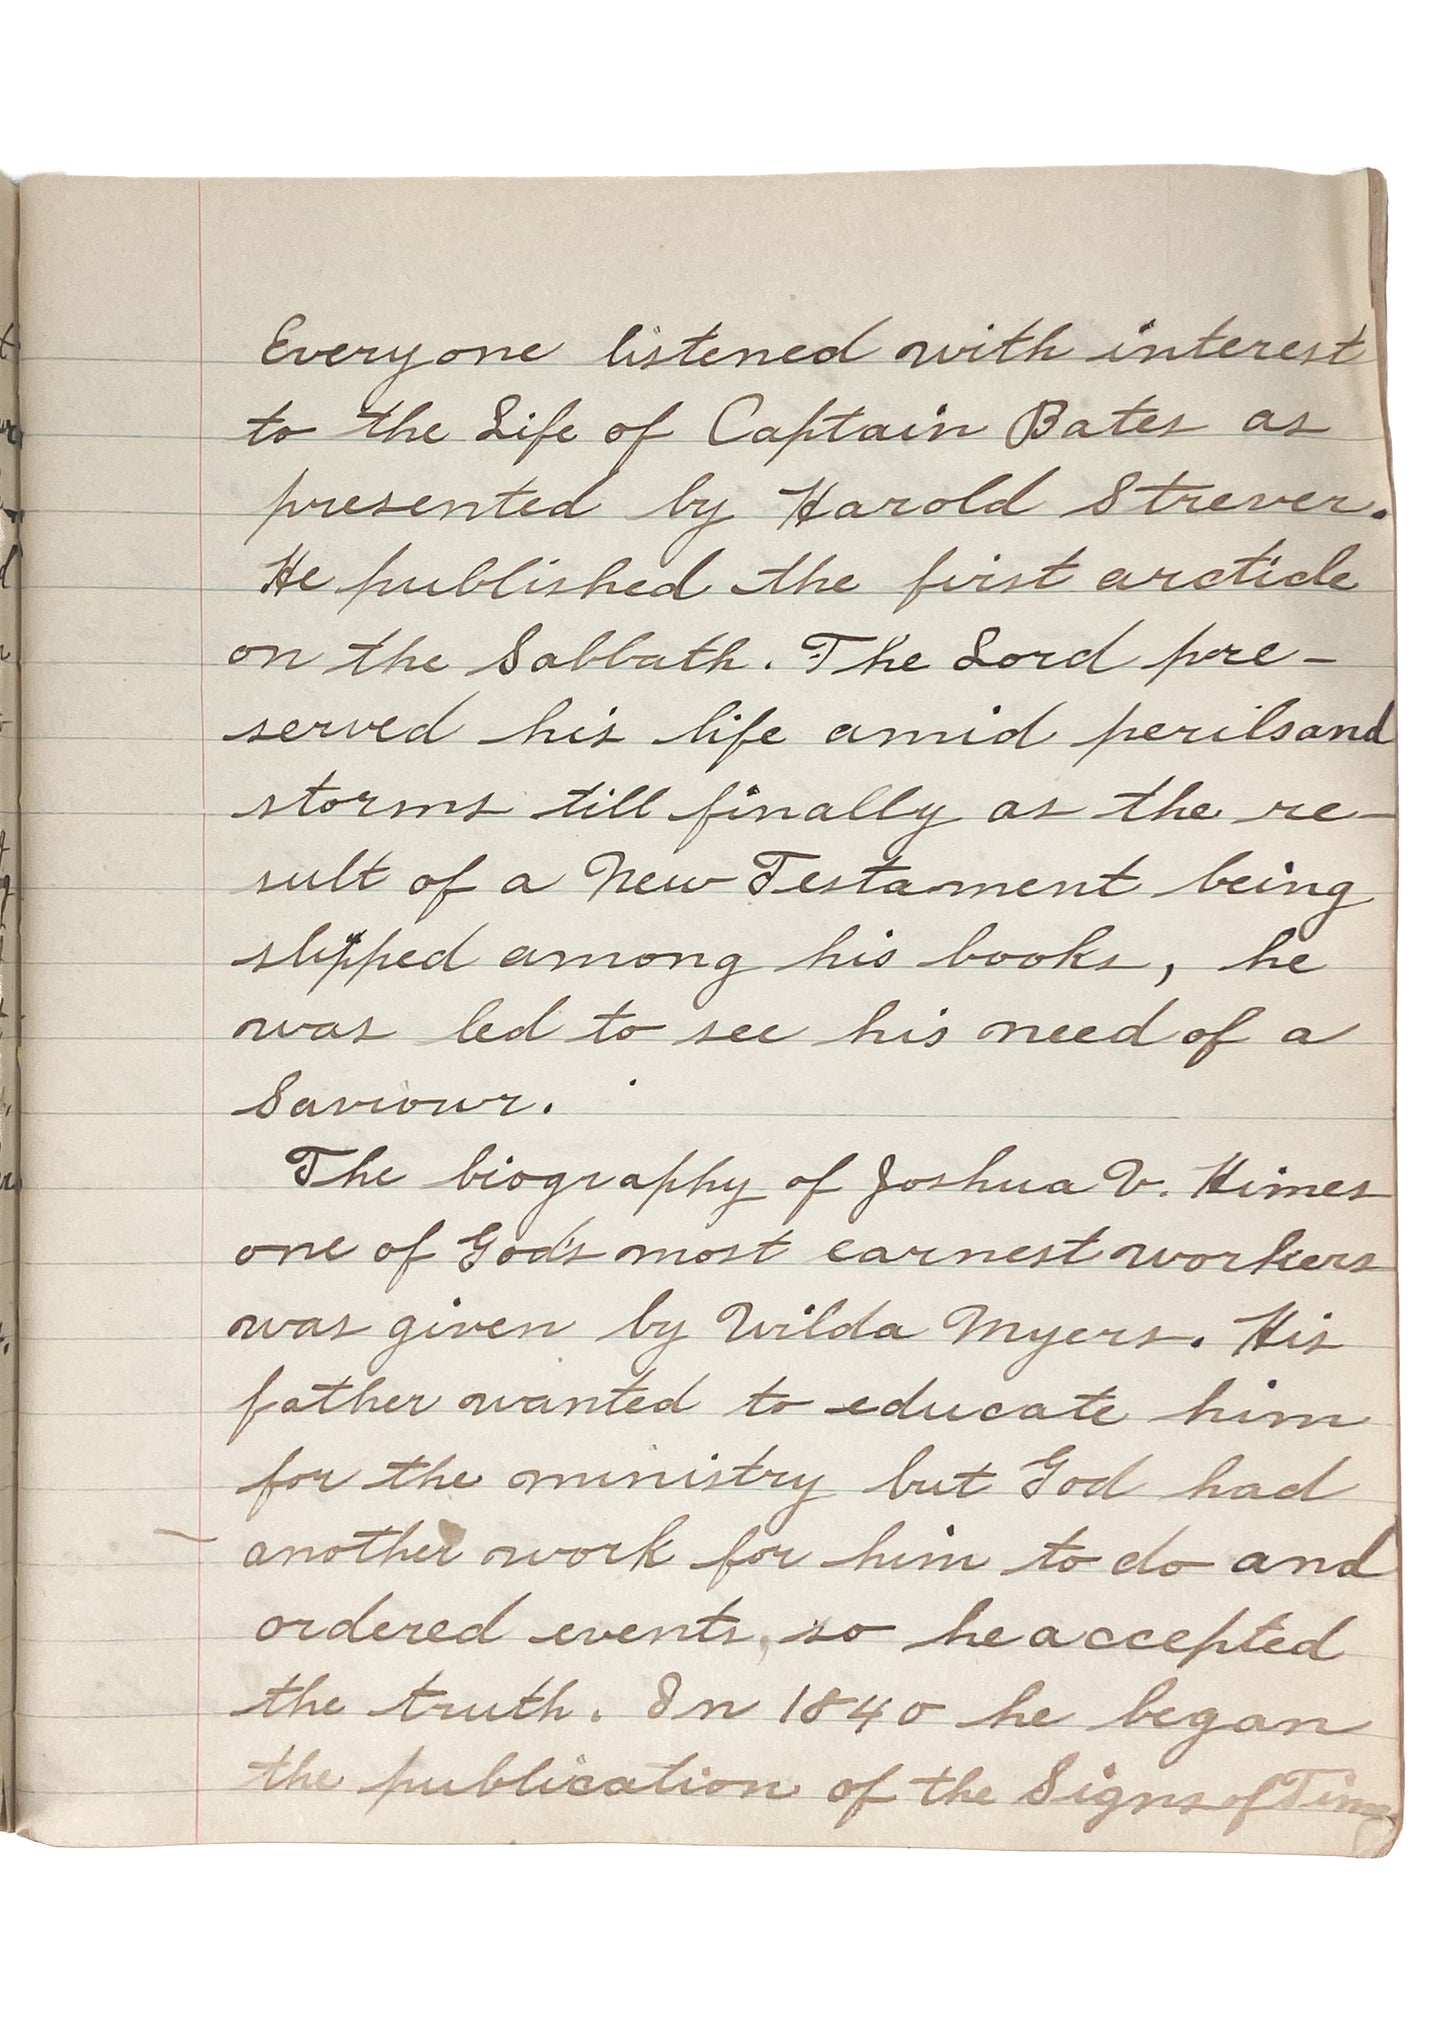 Everyone listened with interest
to the Life of Captain Bates as
presented by Harold Strever.
He published the first arcticle
on the Sabbath. The Lord pre-
served his life amid perils and
storms till finally as the re-
sult of a New Testament being
slipped among his books, he
was led to see his need of a
Saviour.
The biography of Joshua V. Himes
one of God's most earnest workers
was given by Wilda Myers. His
father wanted to educate him
for the ministry but God had
another work for him to do and
ordered events, so he accepted
the truth. In 1840 he began
the publication of the Signs of Times